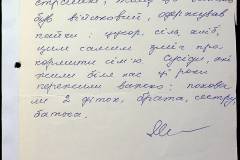 був військовий, одержував
пайки: цукор, сіль, хліб,
цим самим зміг про
кормити сім'ю. Сусіди, які
жили біля нас ці роки
пережили важко: похова
ли 2 діток, брата, сестру,
батька.